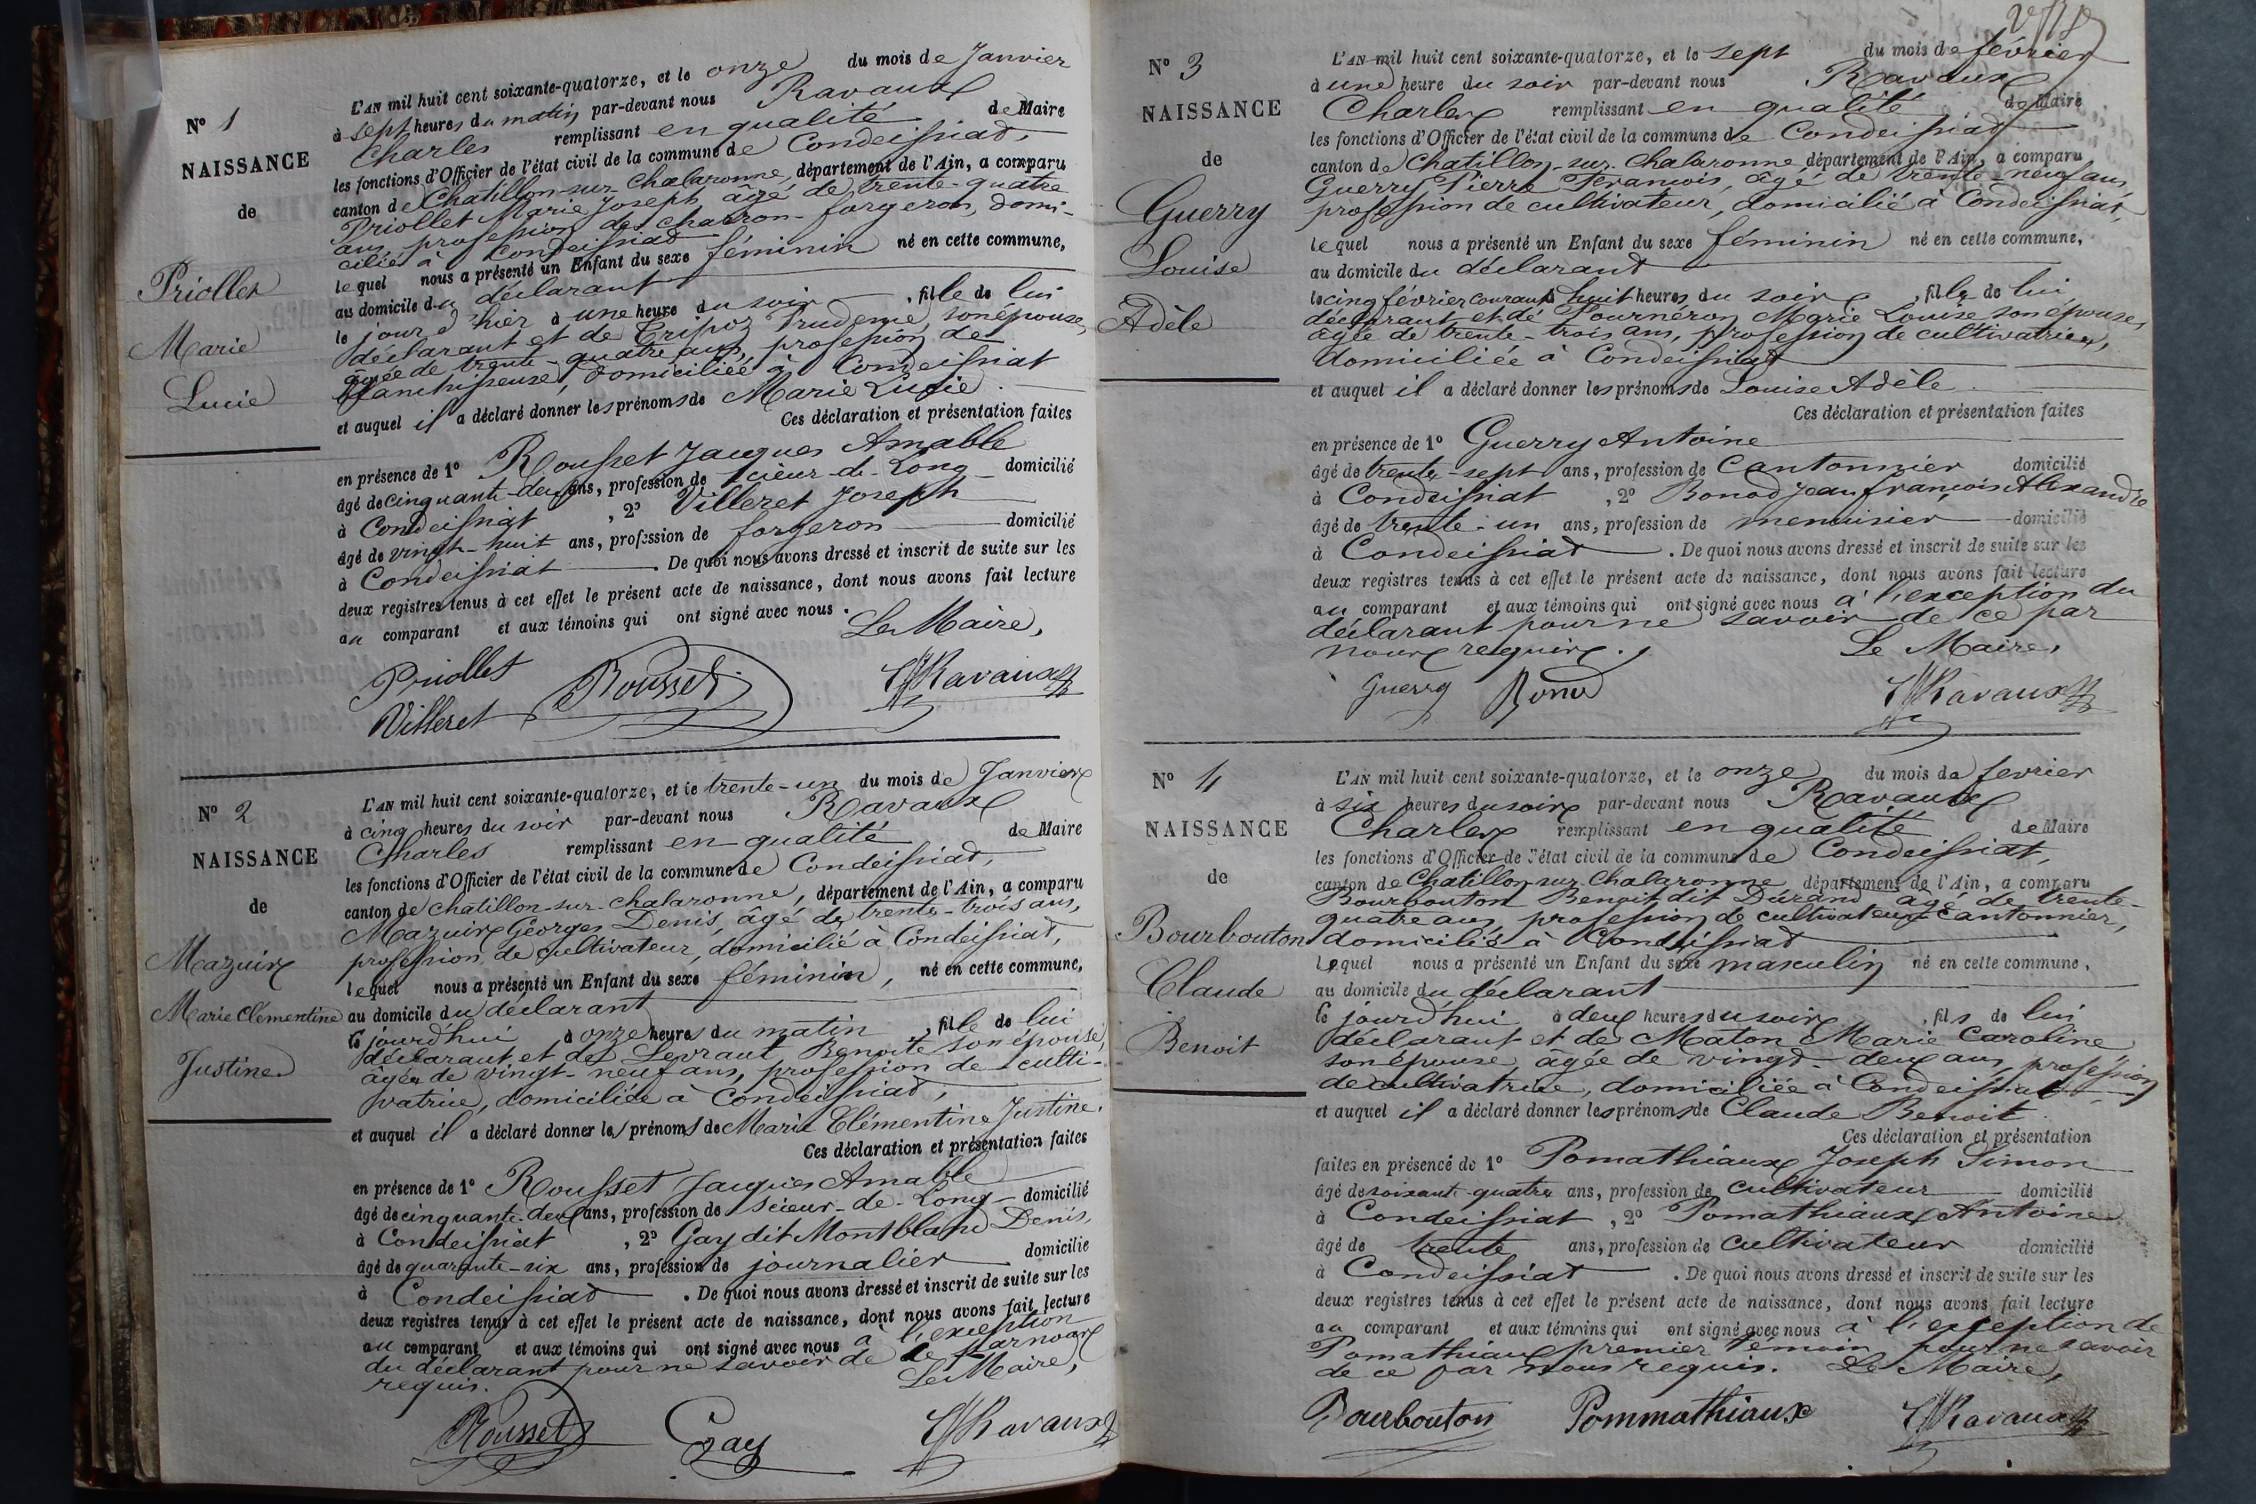 N° 1
NAISSANCE
de
Priollet
Marie
Lucie
L'AN mil huit cent soixante-quatorze, et le onze du mois de Janvier
à sept heures du matin par-devant nous Ravaux
Charles remplissant en qualité de Maire
les fonctions d'Officier de l'état civil de la commune de Condeissiat,
canton de Chatillon-sur-Chalaronne, département de l'Ain, a comparu
Priollet Marie Joseph âgé de trente-quatre
ans, profession de charron-forgeron, domi-
cilié à Condeissiat
lequel nous a présenté un Enfant du sexe féminin né en cette commune,
au domicile du déclarant
le jour d'hier à une heure du soir, fille de lui
déclarant et de Tripoz Prudence, son épouse,
âgée de trente-quatre ans, profession de
blanchisseuse, domiciliée à Condeissiat
et auquel il a déclaré donner les prénoms de Marie Lucie.
Ces déclaration et présentation faites
en présence de 1° Rousset Jacques Amable
âgé de cinquante-deux ans, profession de scieur-de-Long domicilié
à Condeissiat, 2° Villeret Joseph
âgé de vingt-huit ans, profession de forgeron domicilié
à Condeissiat. De quoi nous avons dressé et inscrit de suite sur les
deux registres tenus à cet effet le présent acte de naissance, dont nous avons fait lecture
au comparant et aux témoins qui ont signé avec nous.
Le Maire,
Priollet
Rousset
Ravaux
Villeret
N° 2
NAISSANCE
de
Mazuir
Marie Clémentine
Justine
L'AN mil huit cent soixante-quatorze, et le trente-un du mois de Janvier
à cinq heures du soir par-devant nous Ravaux
Charles remplissant en qualité de Maire
les fonctions d'Officier de l'état civil de la commune de Condeissiat,
canton de Chatillon-sur-Chalaronne, département de l'Ain, a comparu
Mazuir Georges Denis, âgé de trente-trois ans,
profession de cultivateur, domicilié à Condeissiat,
lequel nous a présenté un Enfant du sexe féminin, né en cette commune,
au domicile du déclarant
le jourd'hui à onze heures du matin, fille de lui
déclarant et de Levraut Benoîte son épouse,
âgée de vingt-neuf ans, profession de culti-
vatrice, domiciliée à Condeissiat,
et auquel il a déclaré donner les prénoms de Marie Clémentine Justine.
Ces déclaration et présentation faites
en présence de 1° Rousset Jacques Amable
âgé de cinquante-deux ans, profession de scieur-de-Long domicilié
à Condeissiat, 2° Gay dit Montbland Denis,
âgé de quarante-six ans, profession de journalier domicilié
à Condeissiat. De quoi nous avons dressé et inscrit de suite sur les
deux registres tenus à cet effet le présent acte de naissance, dont nous avons fait lecture
au comparant et aux témoins qui ont signé avec nous à l'exception
du déclarant pour ne savoir de ce par nous
requis. Le Maire,
Rousset Gay Ravaux
N° 3
NAISSANCE
de
Guerry
Louise
Adèle
L'AN mil huit cent soixante-quatorze, et le sept du mois de février
à une heure du soir par-devant nous Ravaux
Charles remplissant en qualité de Maire
les fonctions d'Officier de l'état civil de la commune de Condeissiat
canton de Chatillon-sur-Chalaronne département de l'Ain, a comparu
Guerry Pierre François, âgé de trente-neuf ans,
profession de cultivateur, domicilié à Condeissiat,
lequel nous a présenté un Enfant du sexe féminin né en cette commune,
au domicile du déclarant
le cinq février courant à huit heures du soir, fille de lui
déclarant et de Fourneron Marie Louise son épouse,
âgée de trente-trois ans, profession de cultivatrice,
domiciliée à Condeissiat
et auquel il a déclaré donner les prénoms de Louise Adèle.
Ces déclaration et présentation faites
en présence de 1° Guerry Antoine
âgé de trente-sept ans, profession de Cantonnier domicilié
à Condeissiat, 2° Bonod Jean François Alexandre
âgé de trente-un ans, profession de menuisier domicilié
à Condeissiat. De quoi nous avons dressé et inscrit de suite sur les
deux registres tenus à cet effet le présent acte de naissance, dont nous avons fait lecture
au comparant et aux témoins qui ont signé avec nous à l'exception du
déclarant pour ne savoir de ce par
nous requis.
Le Maire,
Guerry Bonod Ravaux
N° 4
NAISSANCE
de
Bourbouton
Claude
Benoit
L'AN mil huit cent soixante-quatorze, et le onze du mois de fevrier
à six heures du soir par-devant nous Ravaux
Charles remplissant en qualité de Maire
les fonctions d'Officier de l'état civil de la commune de Condeissiat,
canton de Châtillon-sur-Chalaronne département de l'Ain, a comparu
Bourbouton Benoit dit Durand âgé de trente-
quatre ans, profession de cultivateur cantonnier,
domicilié à Condeissiat
lequel nous a présenté un Enfant du sexe masculin né en cette commune,
au domicile du déclarant
le jourd'hui à deux heures du soir, fils de lui
déclarant et de Maton Marie Caroline
son épouse, âgée de vingt-deux ans, profession
de cultivatrice, domiciliée à Condeissiat
et auquel il a déclaré donner les prénoms de Claude Benoit.
Ces déclaration et présentation
faites en présence de 1° Pomathiaux Joseph Simon
âgé de soixante-quatre ans, profession de cultivateur domicilié
à Condeissiat, 2° Pomathiaux Antoine
âgé de trente ans, profession de cultivateur domicilié
à Condeissiat. De quoi nous avons dressé et inscrit de suite sur les
deux registres tenus à cet effet le présent acte de naissance, dont nous avons fait lecture
au comparant et aux témoins qui ont signé avec nous à l'exception de
Pomathiaux premier témoin pour ne savoir
de ce par nous requis. Le Maire,
Bourbouton Pommathiaux Ravaux